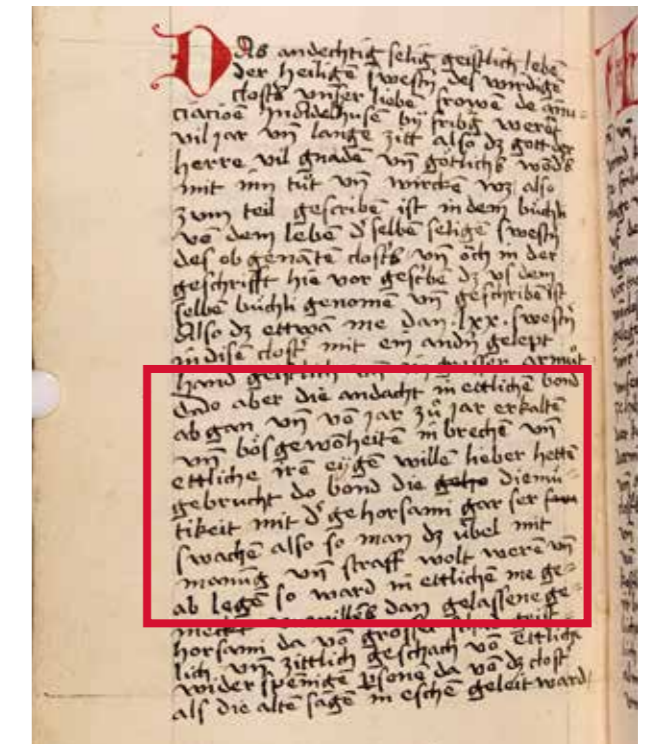 Das andechtig selig geistlich lebē
der heiligē swestrn des wirdigē
closters vnser lieben frowē de
Adelhusē by frib̄g werēt
vil jar vn̄ lange zitt also dz gott der
herre vil gnadē vn̄ götlichs
mit inn tůt vn̄ wirckē wz also
zum teil gescribē ist in dem büchli
vō dem lebē d' selbē seligē swestrn
des ob genātē closters vn̄ öch in der
geschrifft hie vor gescbē dz vs dem
selbē büchli genomē vn̄ geschribē ist
Also dz ettwā me dan .lxx. swestrn
in disē clostr mit ein andrn gelept
hand geistlich vn̄ in grosser armůt
Dado aber die andacht in ettlichē bond
ab gan vn̄ vō jar zů jar erkaltē
vn̄ bös gewōheitē in brechē vn̄
ettliche irē eygē wille lieber hettē
gebrucht do bond die diemü=
tikeit mit d' gehorsami gar ser
swachē also so man dz übel mit
manūg vn̄ straff wolt werē vn̄
ab legē so ward in ettlichē me ge=
merkt willēs dan gelassene ge=
horsami da vō grosser schad geist=
lich vn̄ zittlich geschach vō ettlichē
wider spēnigē psonē da vō dz clostr
als die altē sagē in eschē geleit ward